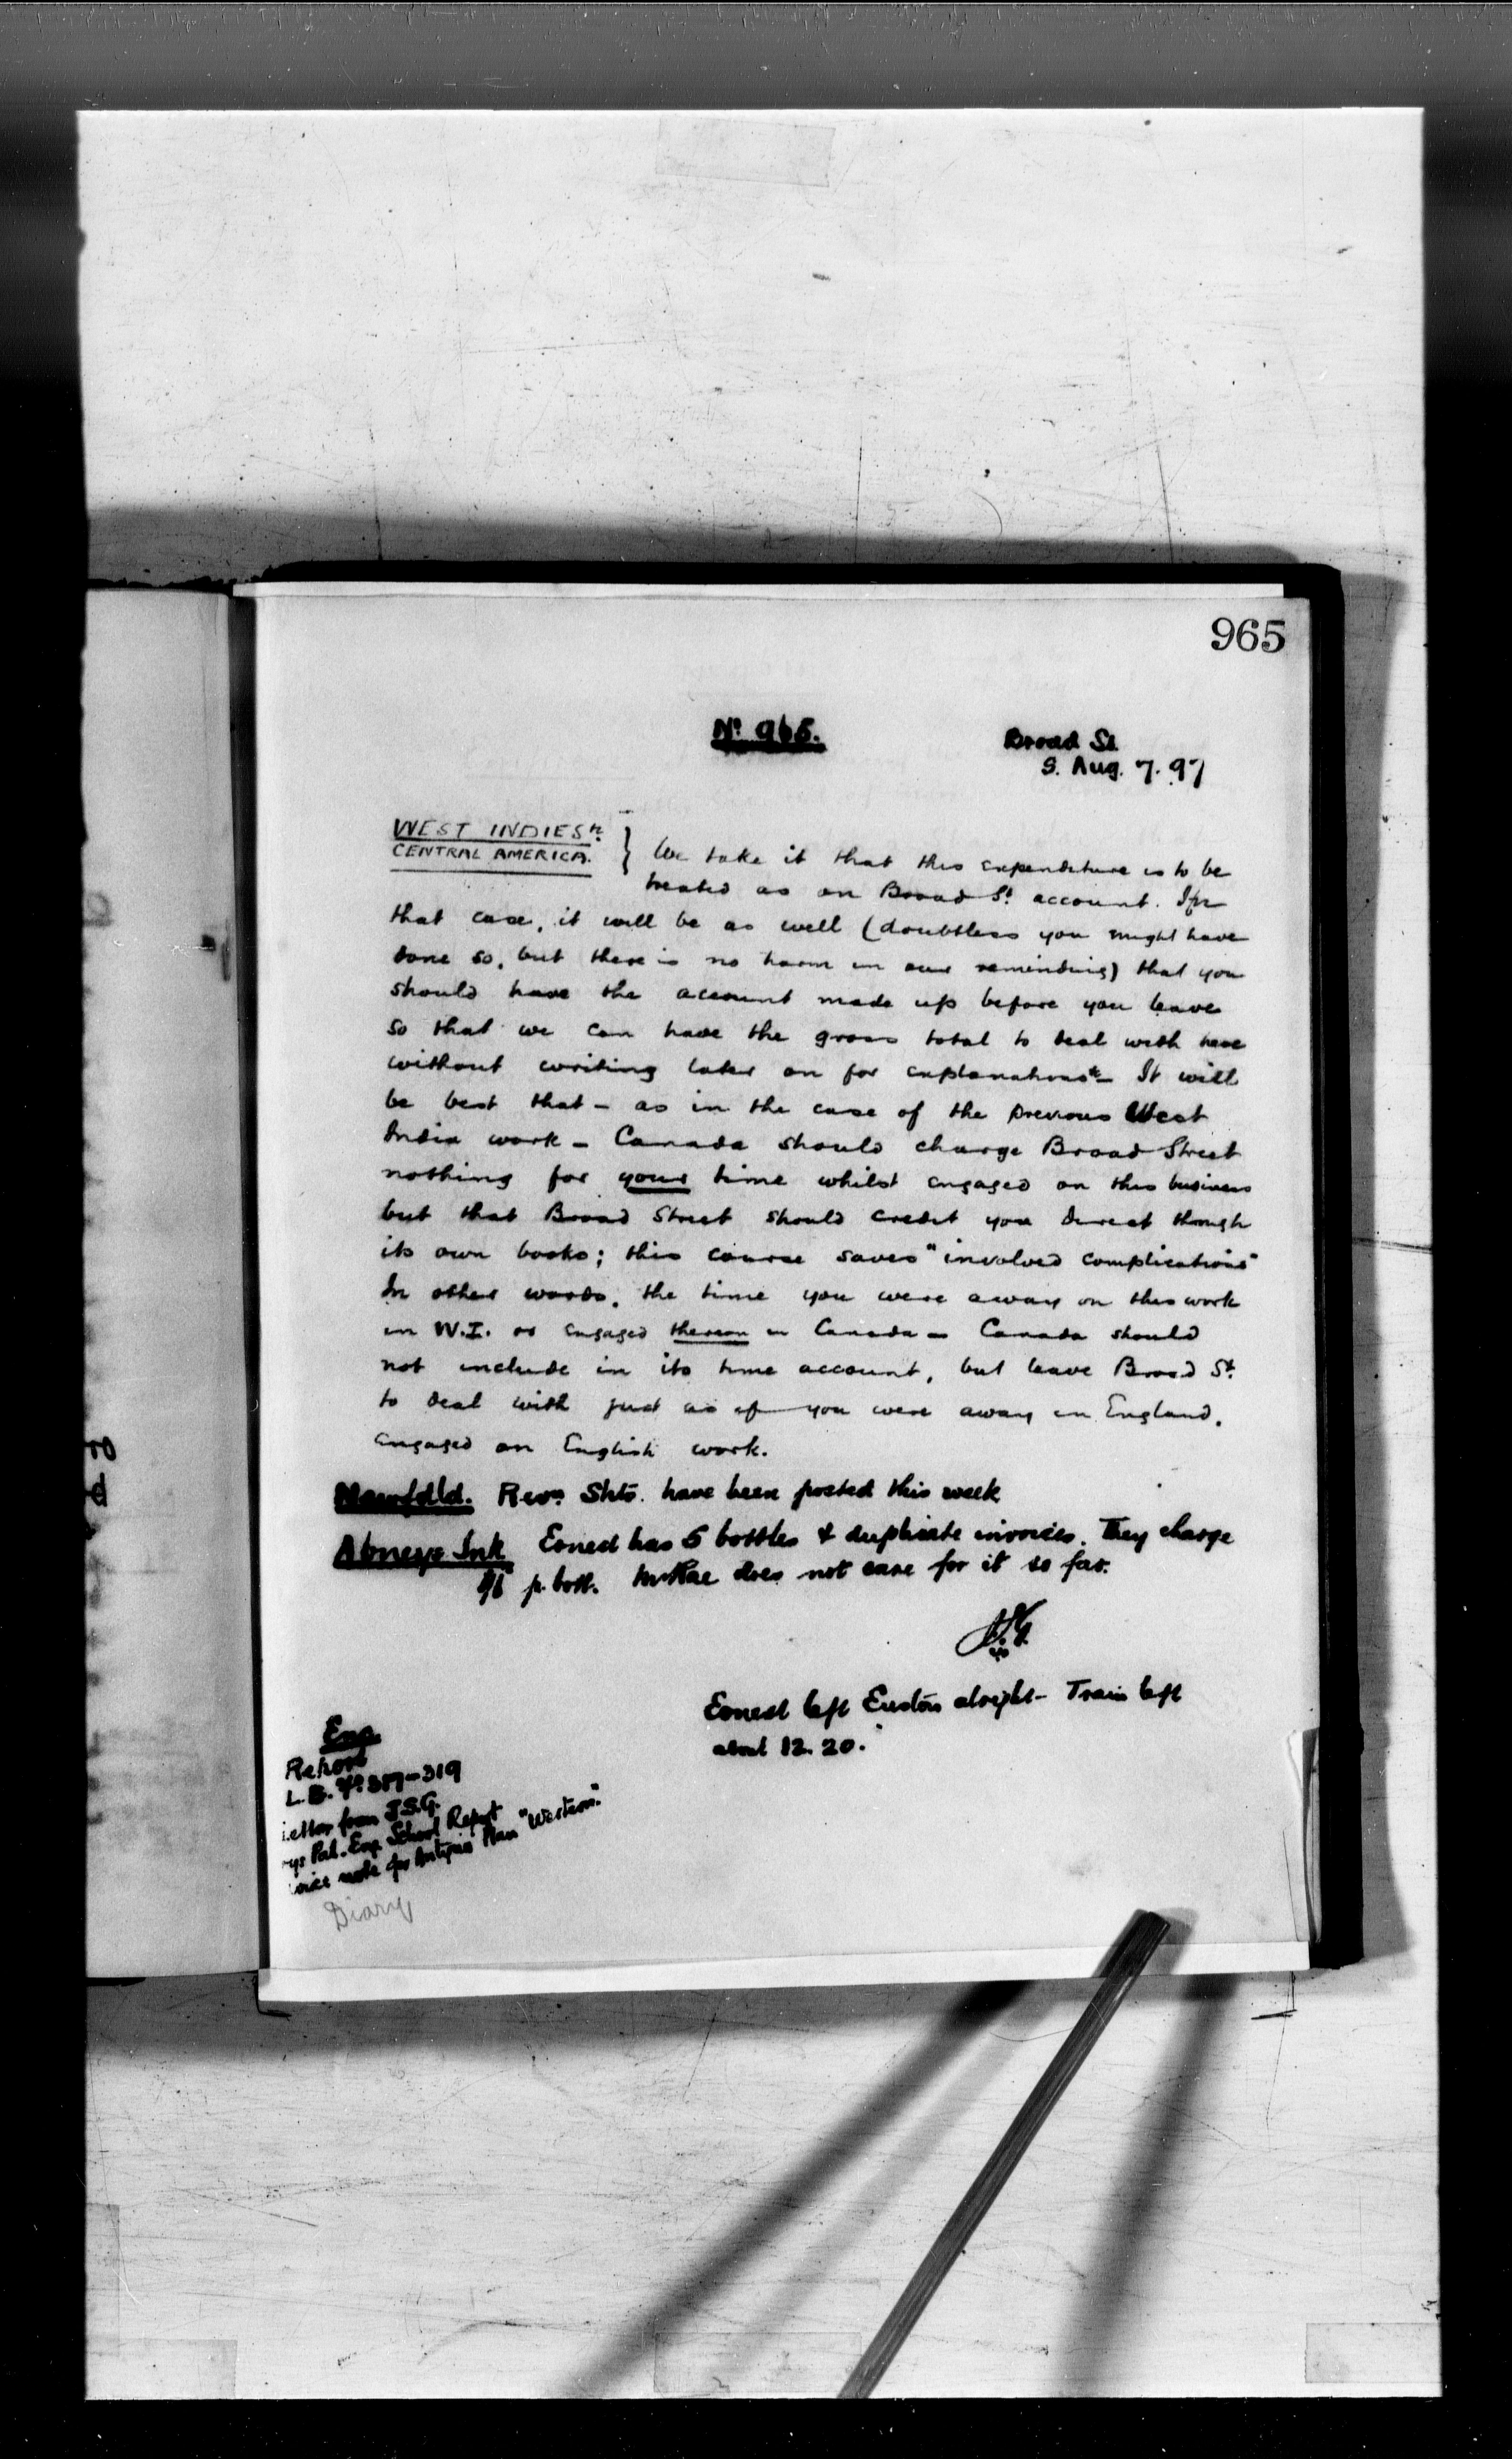 965
No. 965.
Broad St.
S. Aug. 7. 97
WEST INDIES &
CENTRAL AMERICA. } We take it that this expenditure is to be
treated as an Broad St. account. If in
that case, it will be as well (doubtless you might have
done so, but there is no harm in our reminding) that you
should have the account made up before you leave
so that we can have the gross total to deal with here
without writing later on for explanations &c - It will
be best that - as in the case of the previous West
India work - Canada should charge Broad Street
nothing for your time whilst engaged on this business
but that Broad Street should credit you direct through
its own books; this course saves "involved complications"
In other words, the time you were away on this work
in W.I. or engaged thereon in Canada - Canada should
not include in its time account, but leave Broad St.
to deal with just as if you were away in England,
engaged on English work.
Manifold. Revn. Shts. have been posted this week
Abneys Ink Ernest has 6 bottles & duplicate invoices. They charge
p. bott. McRae does not care for it so far.
Ernest left Euston alright - Train left
about 12.20.
Enc.
Report
L.B. 317-319
Letter from J.S.G.
Eng School Report
note for Antigua Plan "Western."
Diary